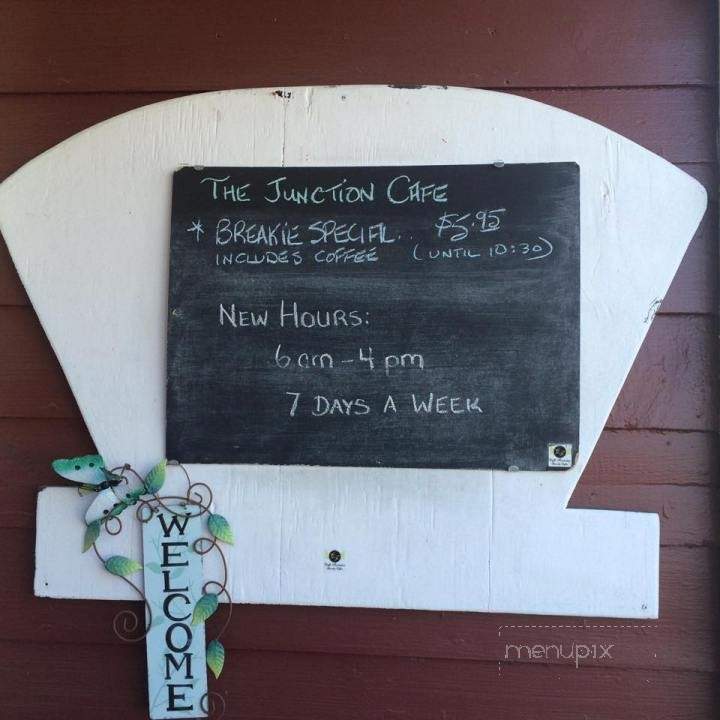 THE JUNCTION CAFE
* BREAKIE SPECIAL.. $5.95
INCLUDES COFFEE (UNTIL 10:30)
NEW HOURS:
6 am - 4 pm
7 DAYS A WEEK
WELCOME
menupix